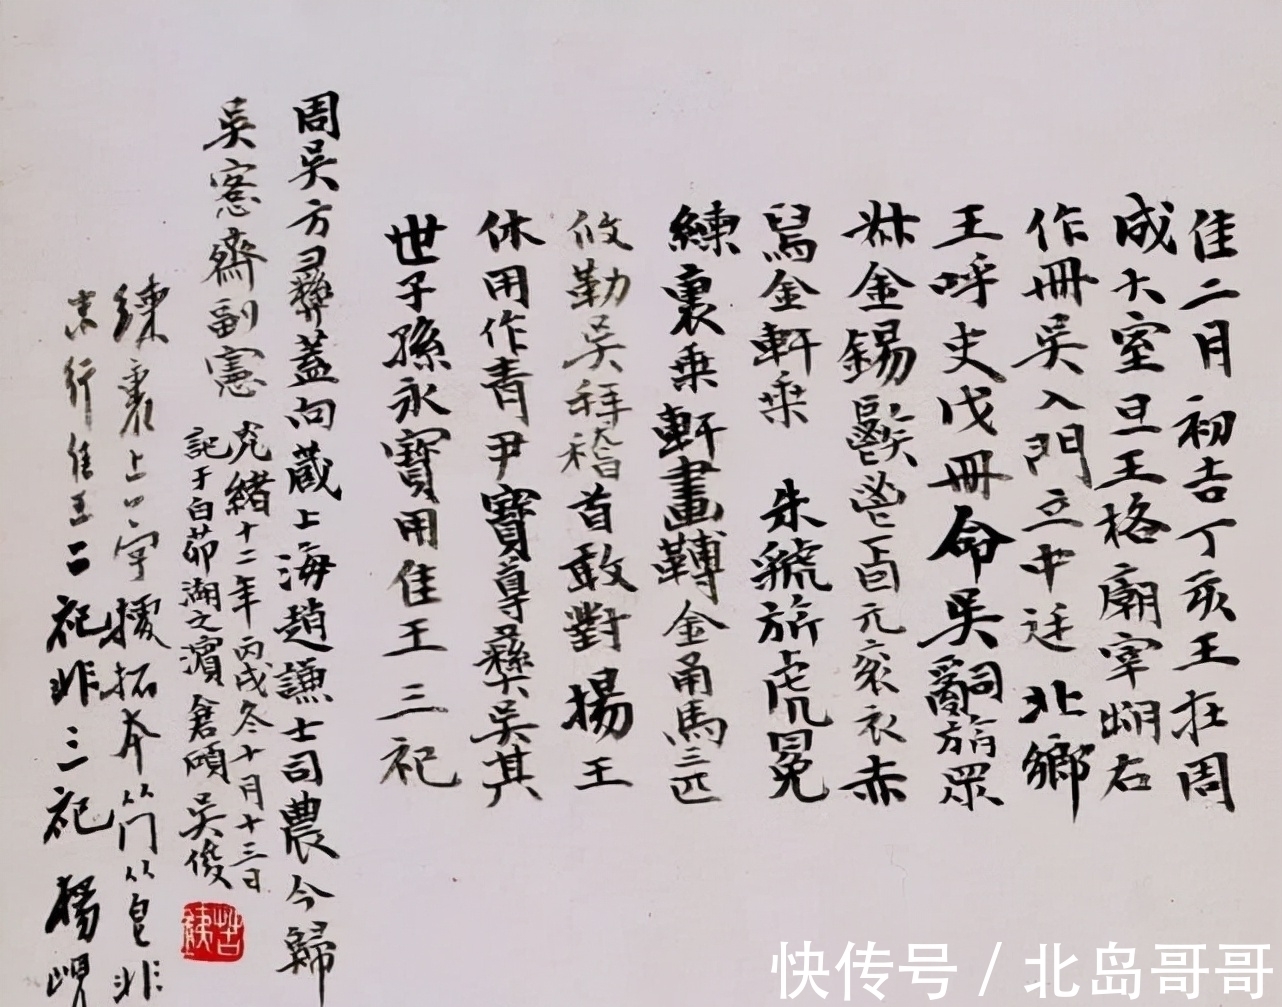 隹二月初吉丁亥王在周
成大室旦王格廟宰朏右
作冊吳入門立中廷北鄉
王呼史戊冊命吳嗣旂眾
叔金錫鬯卣元袞衣赤
舄金軒乘朱虢旂虎冕
練裏乘軒畫轉金甬馬三匹
攸勒吳拜稽首敢對揚王
休用作青尹寶尊彝吳其
世子孫永寶用隹王三祀
周吳方彝蓋向藏上海趙謙士司農今歸
吳愙齋副憲
光緒十二年丙戌冬十月十三日
記于白茆湖之濱倉碩吳俊
練裏上一字據拓本从門从皀非
末行隹王二祀非三祀楊峴
快传号 / 北岛哥哥